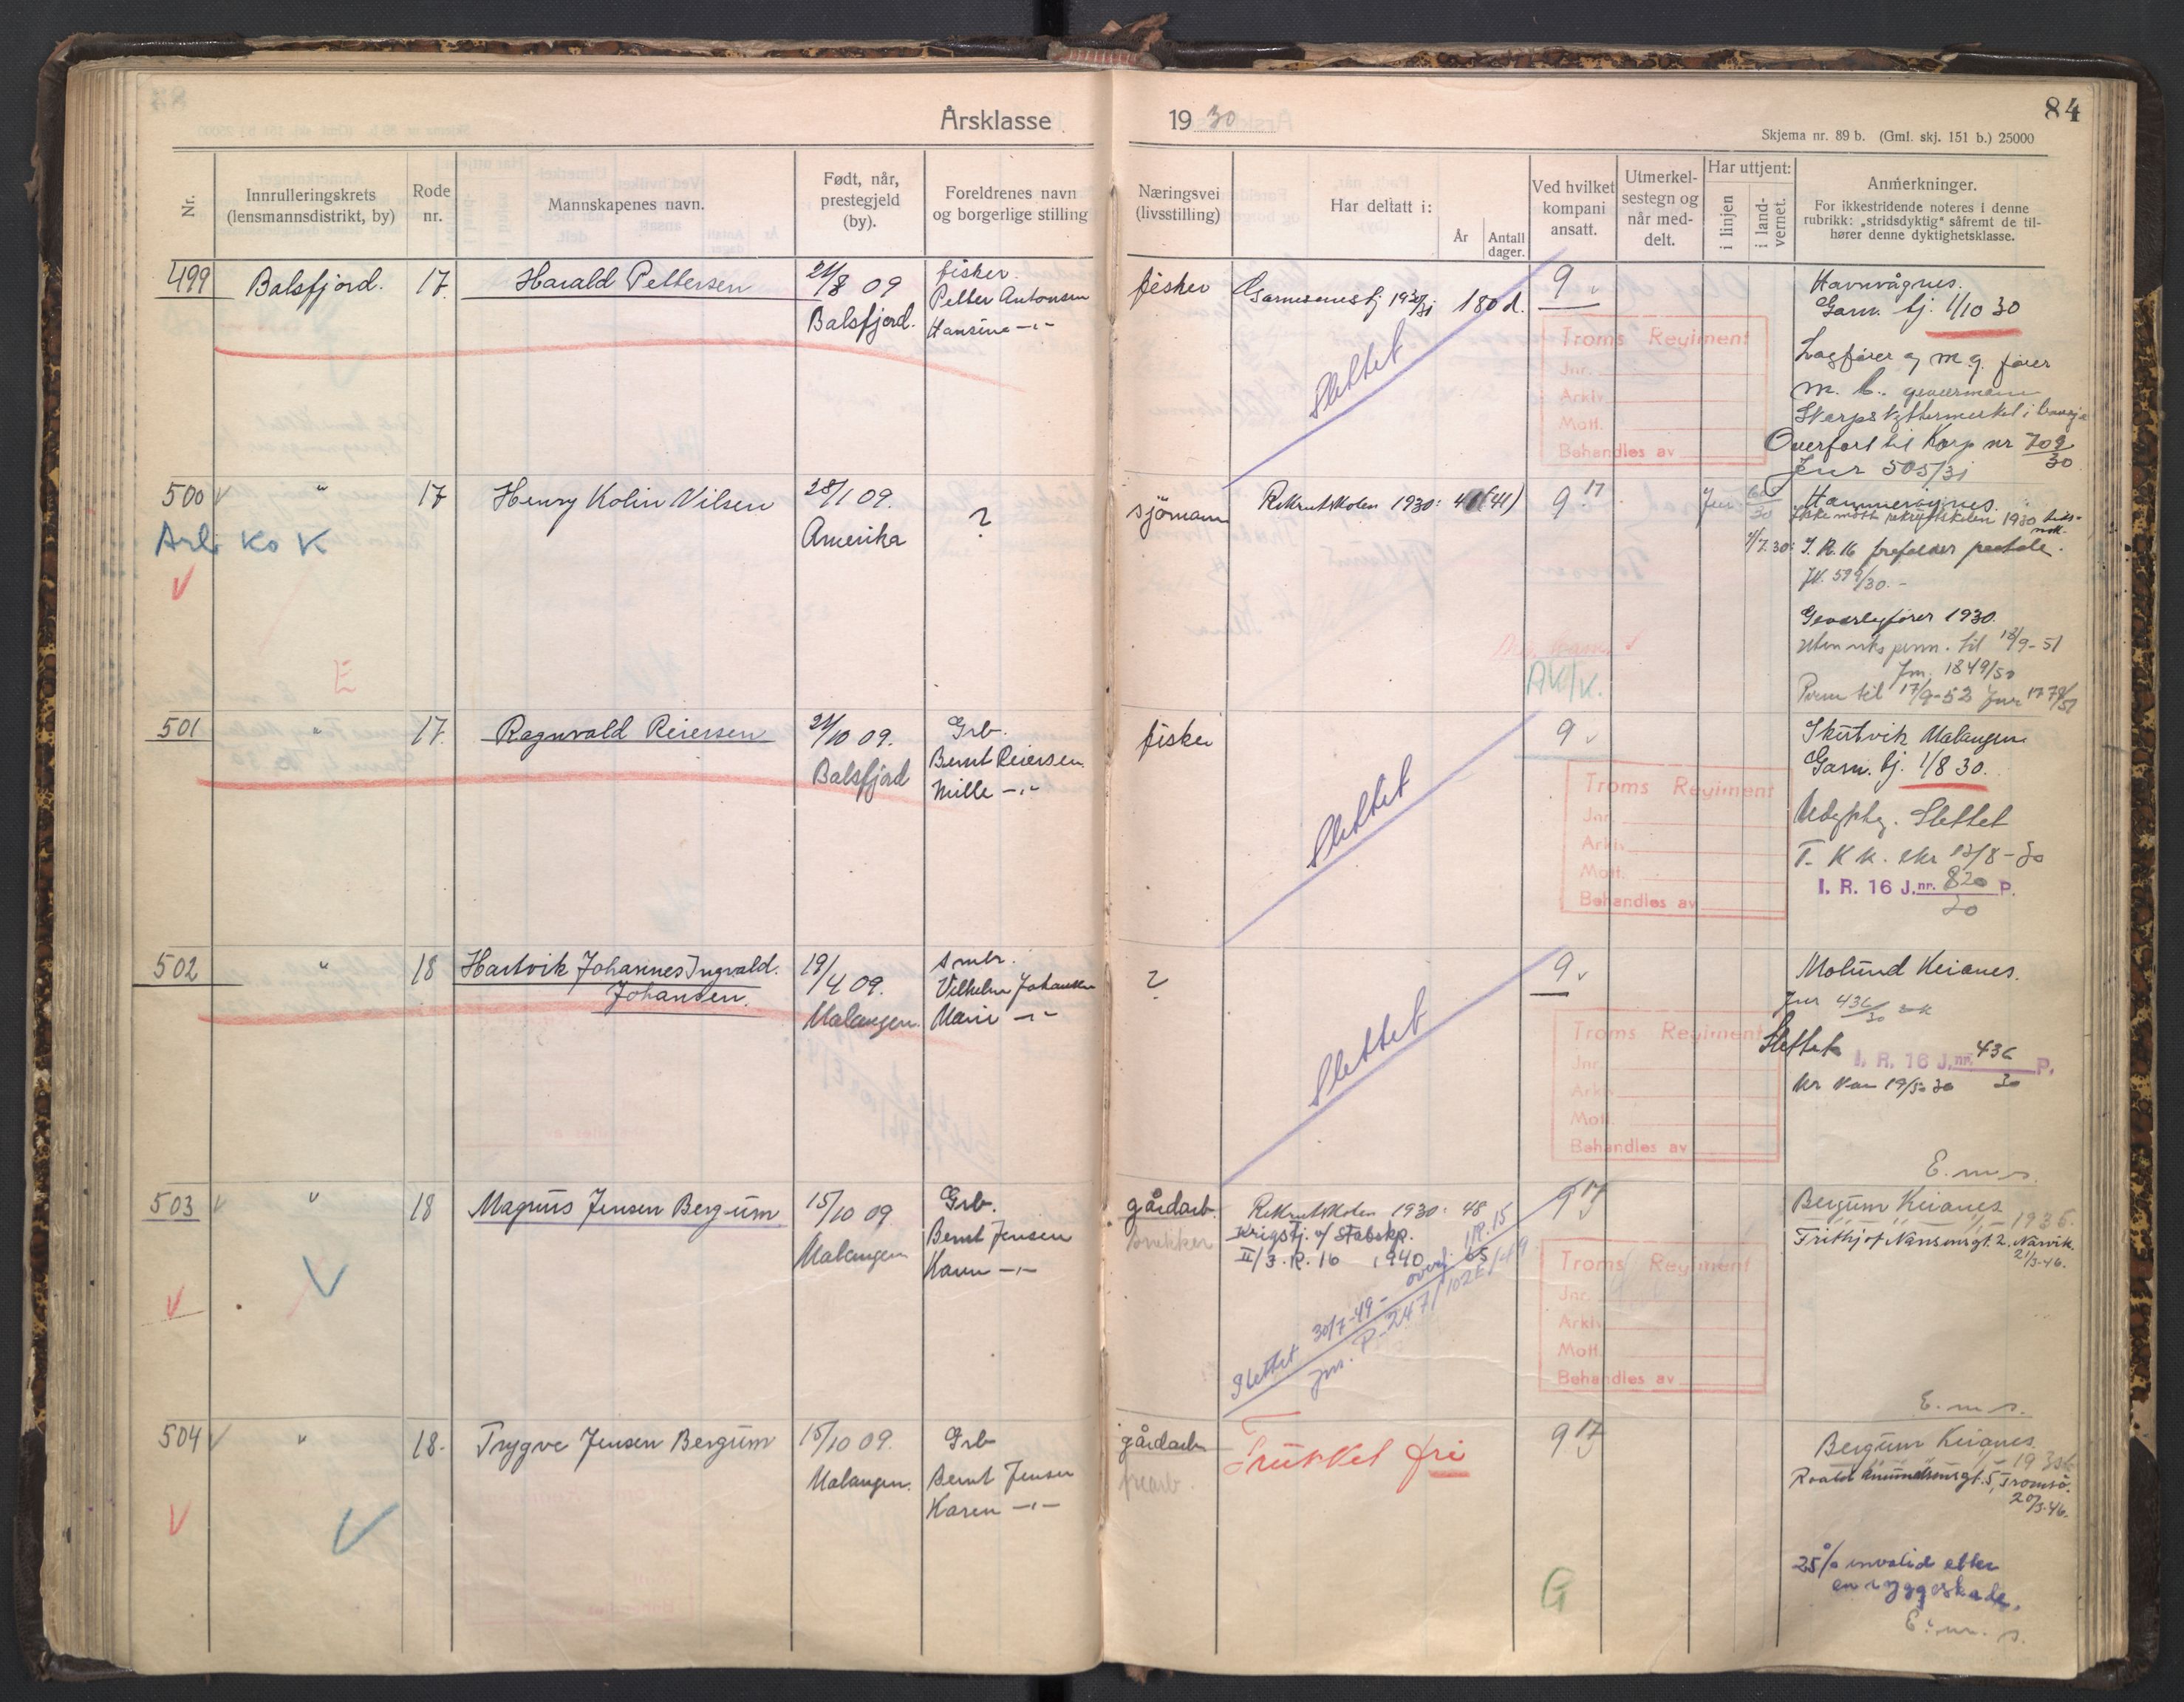 84
Årsklasse 1930
Skjema nr. 89 b. (Gml. skj. 151 b.) 25000
Nr.
Innrulleringskrets
(lensmannsdistrikt, by)
Rode
nr.
Mannskapenes navn.
Født, når,
prestegjeld
(by).
Foreldrenes navn
og borgerlige stilling
Næringsvei
(livsstilling)
Har deltatt i:
År
Antall
dager.
Ved hvilket
kompani
ansatt.
Utmerkel-
sestegn og
når med-
delt.
Har uttjent:
i linjen
i land-
vernet.
Anmerkninger.
For ikkestridende noteres i denne
rubrikk: „stridsdyktig“ såfremt de til-
hører denne dyktighetsklasse.
499
Balsfjord.
17.
Harald Pettersen
21/8 09
Balsfjord.
fisker.
Petter Antonsen
Hansine -"-
fisker
Garnisonstj 1930/31 180 d.
Slettet
9 v
Troms Regiment
Jnr.
Arkiv
Mott.
Behandles av
Havnvågnes.
Garn. tj. 1/10 30
Lagfører og m.g. fører
m. b. geværmann
Overført til Korp nr 702/30
Jnr 505/31
500 v
"
17
Henry Kolin Nilsen
28/1 09.
Amerika
?
Arb Ko K
v
E
sjömann
Rekrutskolen 1930: (41)
9 17
Jnr
30
Hammervågnes.
Ikke møtt rekrutskolen 1930
1/7.30: I. R. 16
JN. 599/30.-
Geværlagfører 1930.
Utenriks perm. til 18/9-51
Jnr. 1849/50
Perm til 17/9-52 Jnr 1778/51
AK/K.
501
"
17.
Ragnvald Reiersen
21/10 09.
Balsfjord
Grb.
Bernt Reiersen
Mille -"-
fisker
Slettet
9 v
Troms Regiment
Jnr.
Arkiv
Mott.
Behandles av
Malangen
Garn. tj. 1/8 30.
Udyktig. Slettet
T. K k. skr 12/8-30
I. R. 16 J.nr. 820 P.
30
502
"
18
Hartvik Johannes Ingvald.
Johansen.
19/4 09.
Malangen.
Smbr.
Vilhelm Johansen
Marie -"-
?
Slettet
9 v
Troms Regiment
Jnr.
Arkiv
Mott.
Behandles av
Molund Keianes.
Jnr 436/30
Slettet
I. R. 16 J.nr. 436 P.
30
19/5 30
E. m. s.
503 v
"
18
Magnus Jensen Bergum
15/10 09
Malangen
Grb.
Bernt Jensen
Karen -"-
v
V
gårdarb.
Rekrutskolen 1930: 48
Krigstj. v/ Stabskp.
II/I.R. 16 1940 65
Slettet 30/7-49 - overf. IR.15
jnr. P-247/102E/49
9 17
Troms Regiment
Jnr.
Arkiv
Mott.
Behandles av
Bergum Keianes
1935.
Frithjof Nansensgt. 2. Narvik.
21/3-46.
E. m s.
504 v
"
18.
Trygve Jensen Bergum
15/10 09.
Malangen.
Grb
Bernt Jensen
Karen -"-
v
V
gårdarb
Trukket fri
9 17
G
Bergum Keianes.
Roald Amundsensgt. 5, Tromsø.
20/3-46.
25% invalid etter
en ryggskade.
E. m. s.